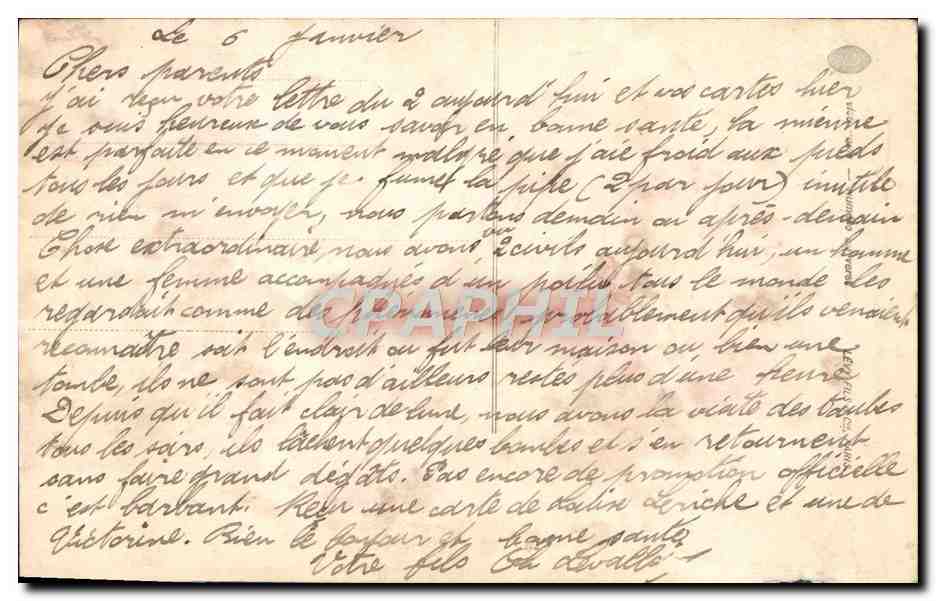 Le 6 Janvier
Chers parents
J'ai reçu votre lettre du 2 aujourd'hui et vos cartes hier
Je suis heureux de vous savoir en bonne santé, la mienne
est parfaite en ce moment malgré que j'aie froid aux pieds
tous les jours et que je fume la pipe (2 par jour) inutile
de rien m'envoyer, nous partons demain ou après-demain
Chose extraordinaire, nous avons vu 2 civils aujourd'hui, un homme
et une femme accompagnés d'un poilu tous le monde les
regardait comme des phénomènes, probablement qu'ils venaient
reconnaître soit l'endroit ou fut leur maison ou bien une
tombe, ils ne sont pas d'ailleurs restés plus d'une heure
Depuis qu'il fait clair de lune, nous avons la visite des taubes
tous les soirs, ils lâchent quelques bombes et s'en retournent
sans faire grand dégâts. Pas encore de promotion officielle
c'est barbant. Reçu une carte de Leriche et une de
Victorine. Bien le bonjour et bonne santé
Votre fils Ch Levallois
CPAPHIL